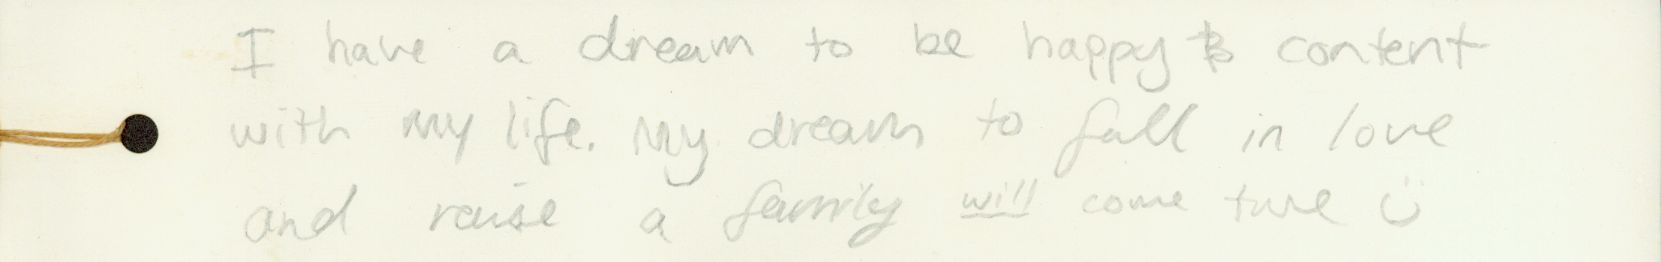 I have a dream to be happy & content
with my life. My dream to fall in love
and raise a family will come true